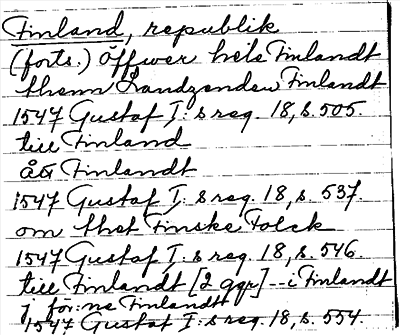 Finland, republik
(forts.) Öffwer hele Finlandt
them Landzenden Finlandt
1547 Gustaf I:s reg. 18, s. 505.
till Finland
åt Finlandt
1547 Gustaf I:s reg. 18, s. 537.
om thet Finske Folck
1547 Gustaf I:s reg. 18, s. 546.
till Finlandt [2 ggr] -- i Finlandt
j för:ne Finlandtt
1547 Gustaf I:s reg. 18, s. 554.